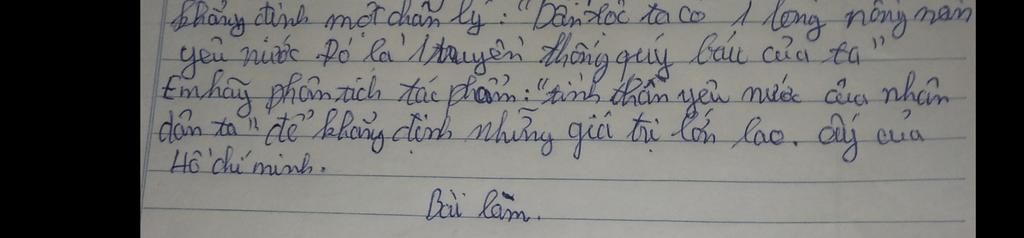 khẳng định một chân lý: "Dân tộc ta có 1 lòng nồng nàn
yêu nước Đó là 1 truyền thống quý báu của ta"
Em hãy phân tích tác phẩm: "tinh thần yêu nước của nhân
dân ta" để khẳng định những giá trị lớn lao. ấy của
Hồ chí minh.
Bài làm.